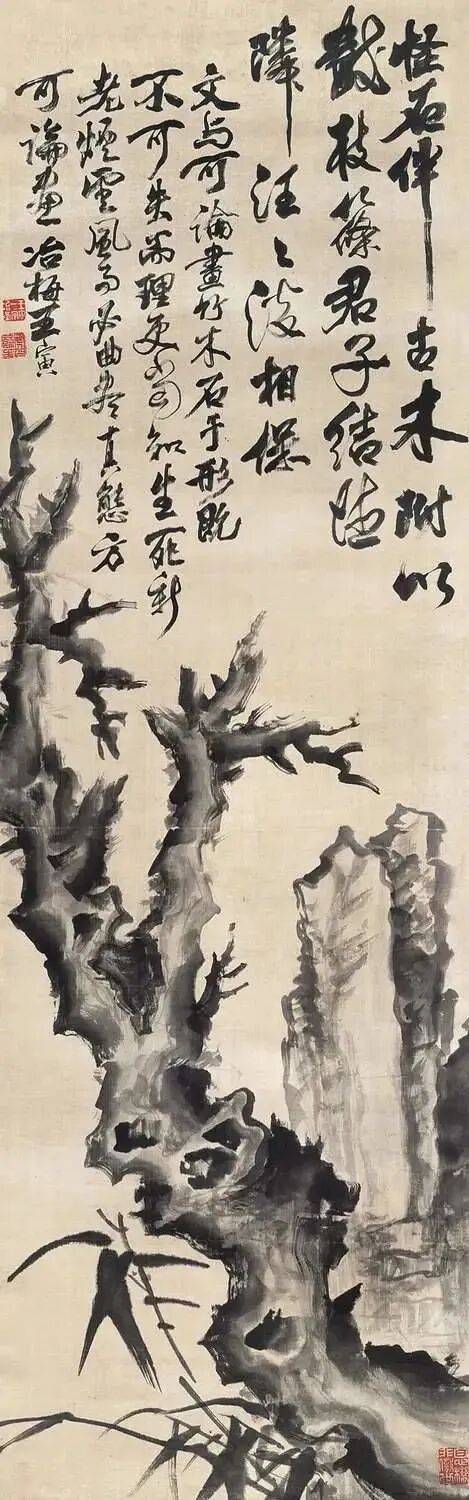 怪石伴古木附以
數枝篠君子結德
隣汪〻陂相揖
文与可論畫竹木石于形既
不可失而理更當知生死新
老煙雲風雨必曲盡真態方
可論畫 冶梅王寅